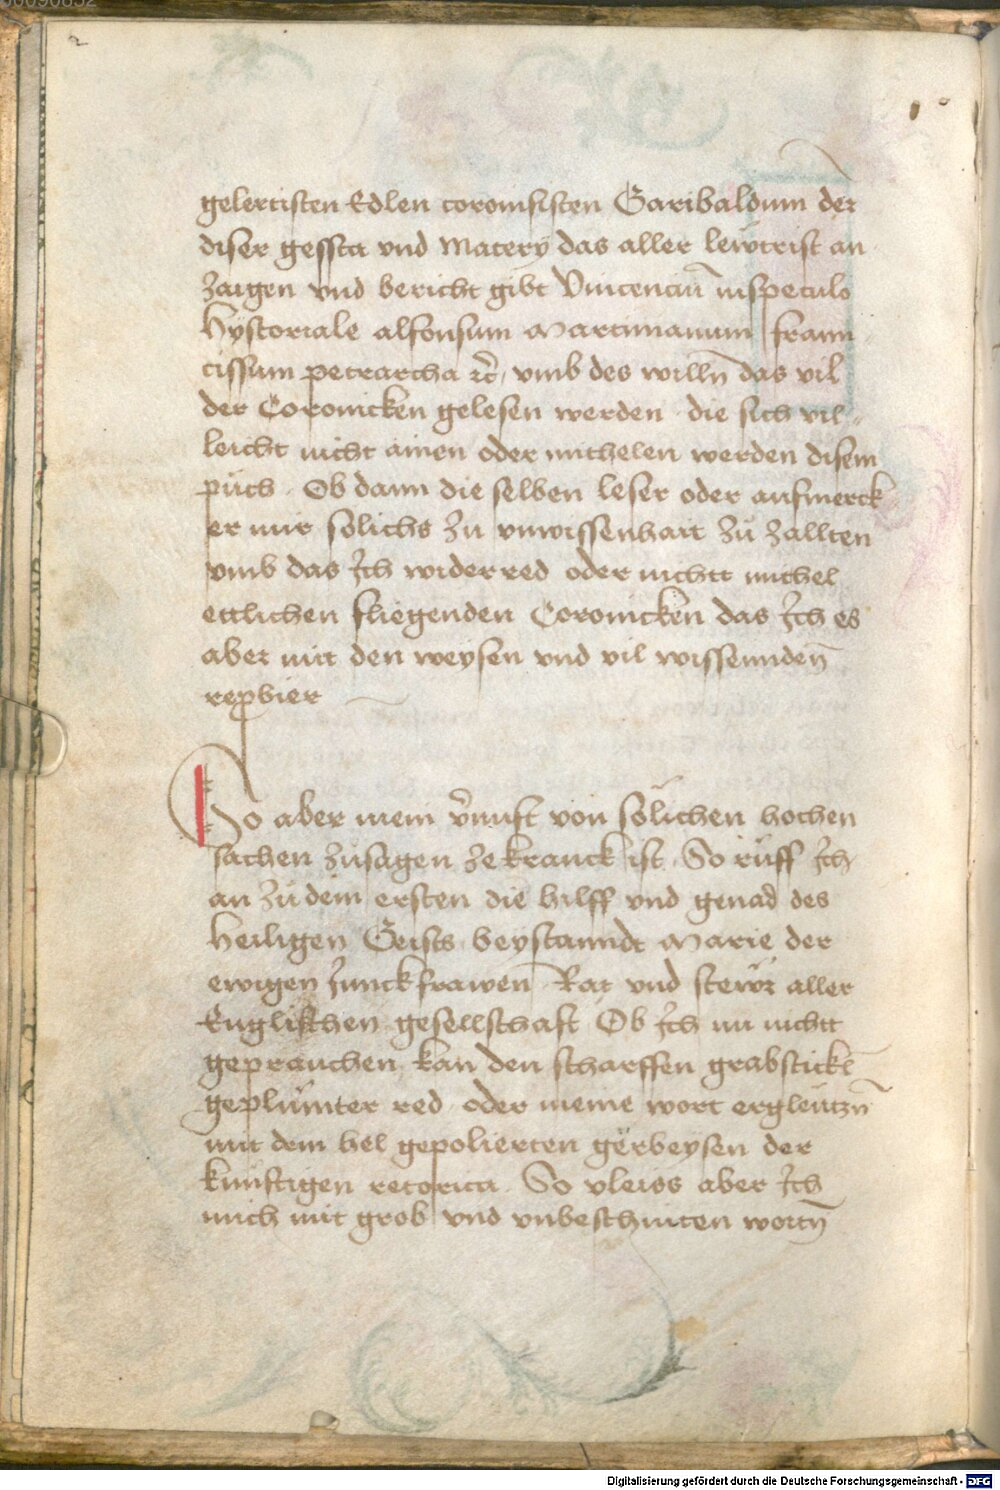 gelertisten Edlen coronisisten Garibaldum der
diser gessta vnd Matery das aller lewtrist an
zaigen vnd bericht gibt Vincenciu̅ inspeculo
hystoriale alfonsum Martimanum frann
cissum petrarcha ꝛc̃ vmb des willn̄ das vil
der Coronicken gelesen werden die sich vil-
leicht nicht ainen oder mithelen werden disem
püch . Ob dann die selben leser oder aufmerck
er mir sölichs zu vnwissenhait zu zallten
vmb das Ich widerred oder nichtt mithel
ettlichen fliegenden Coronicken das Ich es
aber mit den weysen vnd vil wissennden̄
repbier
So aber mein v̾nuft von sölichen hochen
sachen zusagen ze kranck ist . So rüff Ich
an zu dem ersten die hilff vnd genad des
Heiligen Geists beystanndt Marie der
ewigen Junckfrawen Rat vnd stewr aller
Englischen gesellschaft Ob Ich nu nichtt
geprauchen kan den scharffen grabstickl̄
geplümter red oder meine wort ergleutzn̄
mit dem hel gepolierten gerbeysen der
künftigen retorica . So vleiss aber Ich
mich mit grob vnd vnbeschniten wortn̄
Digitalisierung gefördert durch die Deutsche Forschungsgemeinschaft - DFG